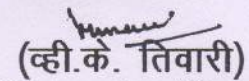 (व्ही.के. तिवारी)